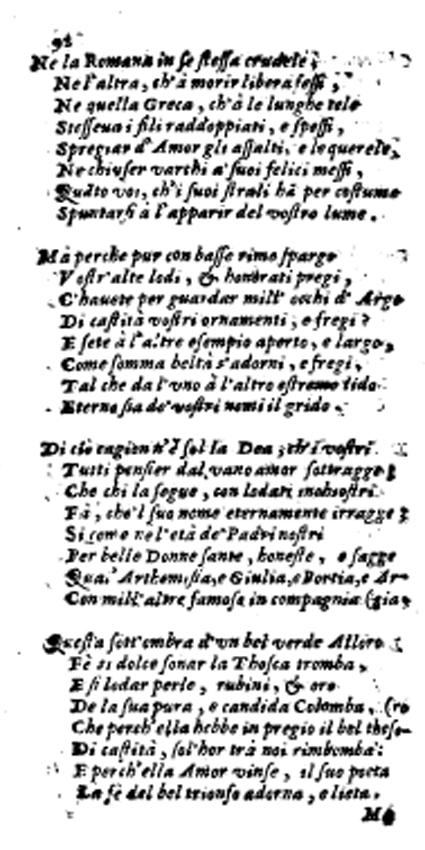 92
Ne la Romana in se stessa crudele,
Ne l'altra, ch'à morir libera fessi,
Ne quella Greca, ch'à le lunghe tele
Stesseua i fili raddoppiati, e spessi,
Spregiar d'Amor gli assalti, e le querele,
Ne chiuser varchi a' suoi felici messi,
Quãto voi, ch'i suoi strali hã per costume
Spuntarsi à l'apparir del vostro lume.
Mà perche pur con basse rime spargo
Vostr'alte lodi, & honorati pregi,
C'hauete per guardar mill' occhi d' Argo
Di castità vostri ornamenti, e fregi?
E sete à l'altre esempio aperto, e largo,
Come somma beltà s'adorni, e fregi,
Tal che da l'vno à l'altro estremo lido
Eterno sia de' vostri nomi il grido.
Di ciò cagion n'è sol la Dea, ch'i vostri
Tutti pensier dal vano amor sottragge;
Che chi la segue, con lodati inchiostri
Fà, che'l suo nome eternamente irragge;
Si come ne l'età de' Padri nostri
Per belle Donne sante, honeste, e sagge
Quai' Arthemisia, e Giulia, e Portia, e Ar-
Con mill'altre famose in compagnia (gia,
Questa sott'ombra d'vn bel verde Alloro
Fè si dolce sonar la Thosca tromba,
E si lodar perle, rubini, & oro
De la sua pura, e candida Colomba, (ro
Che perch'ella hebbe in pregio il bel theso-
Di castità, sol'hor trà noi rimbomba:
E perch'ella Amor vinse, il suo poeta
La fè del bel trionfo adorna, e lieta.
Mà